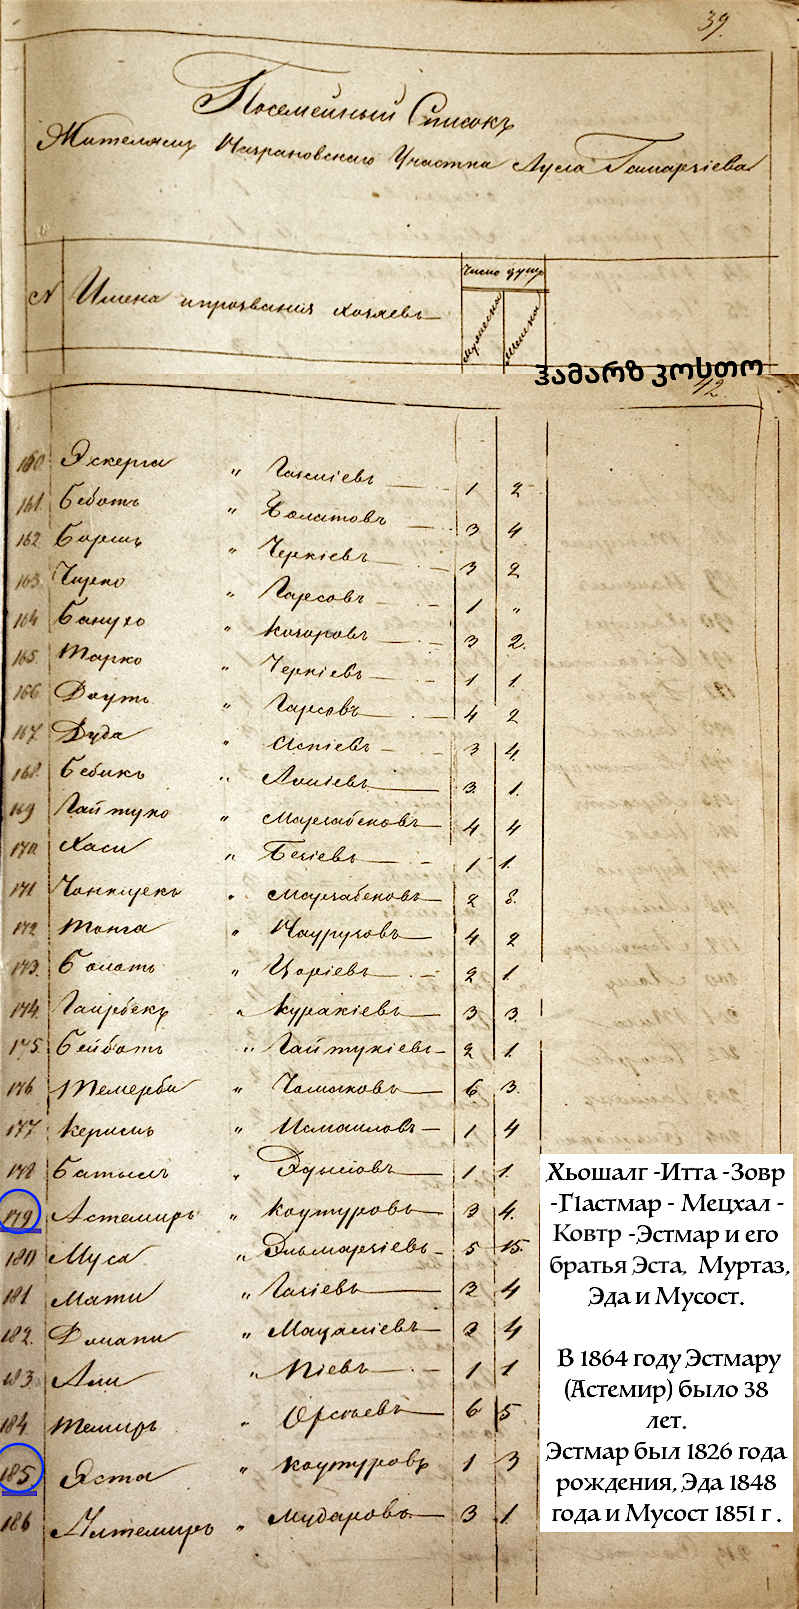 39.
Посемейный Списокъ
Жителямъ Назрановскаго Участка Аула Гамарзіева
№ Имена и прозванія хозяевъ
Число душъ
Мужеска Женска
ჰამარზ კოსთო
42.
160. Эскерга " 1 2
161. Беботъ " Болатовъ 3 4
162. Борешъ " Черкіевъ 3 2
163. Чирко " Гарсовъ 1 "
164. Банухо " Козоровъ 3 2.
165. Марко " Черкіевъ 1 1.
166. Даутъ " Гарсовъ 4 2
167. Дуда " Аспіевъ 3 4.
168. Бебикъ " 3. 1.
169 Гайтуко " Марзабековъ 4 4
170. Хаси " Бекіевъ 1 1.
171 " Марзабековъ 2 8.
172 Тонга " Наурузовъ 4 2
173. Болатъ " Цоріевъ 2 1.
174. Гаирбекъ " Куракіевъ 3 3.
175. Бейботъ " Гайтукіевъ 2 1.
176 Темерби " 6 3.
177. Керимъ " Исмаиловъ 1 4
178 Батыгъ " 1 1.
179 Астемиръ " Коутуровъ 3 4.
180 Муса " Эльмарзіевъ 5 15.
181 Мати " Гагіевъ 3 4
182. " Мацаліевъ 3 4
183. Али " Піевъ 1 1
184. Темиръ " 6 5
185. Эста " Коутуровъ 1 3
186 Алтемиръ " Мударовъ 3 1.
Хьошалг -Итта -Зовр
-ГІастмар - Мецхал -
Ковтр -Эстмар и его
братья Эста, Муртаз,
Эда и Мусост.
В 1864 году Эстмару
(Астемир) было 38
лет.
Эстмар был 1826 года
рождения, Эда 1848
года и Мусост 1851 г .